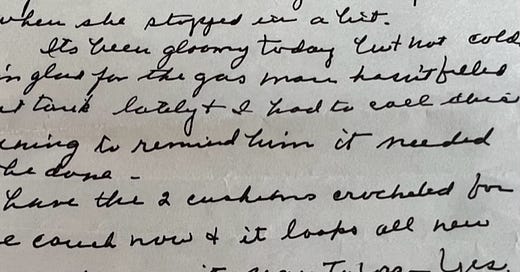 when she stopped in a bit.
Its been gloomy today but not cold
in glad for the gas man hasn't filled
tank lately + I had to call this
ning to remind him it needed
be done -
have the 2 cushions crocheted for
e couch now & it looks all new
Yes